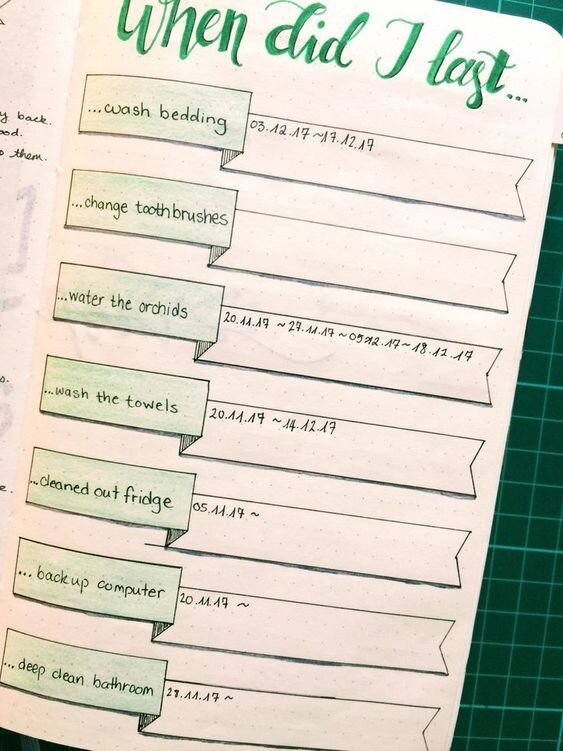 When did I last...
...wash bedding
03.12.17 ~17.12.17
...change toothbrushes
...water the orchids
20.11.17 ~ 27.11.17 ~ 05.12.17 ~ 18.12.17
...wash the towels
20.11.17 ~14.12.17
...cleaned out fridge
05.11.17 ~
...back up computer
20.11.17 ~
...deep clean bathroom
28.11.17 ~
y back.
them.